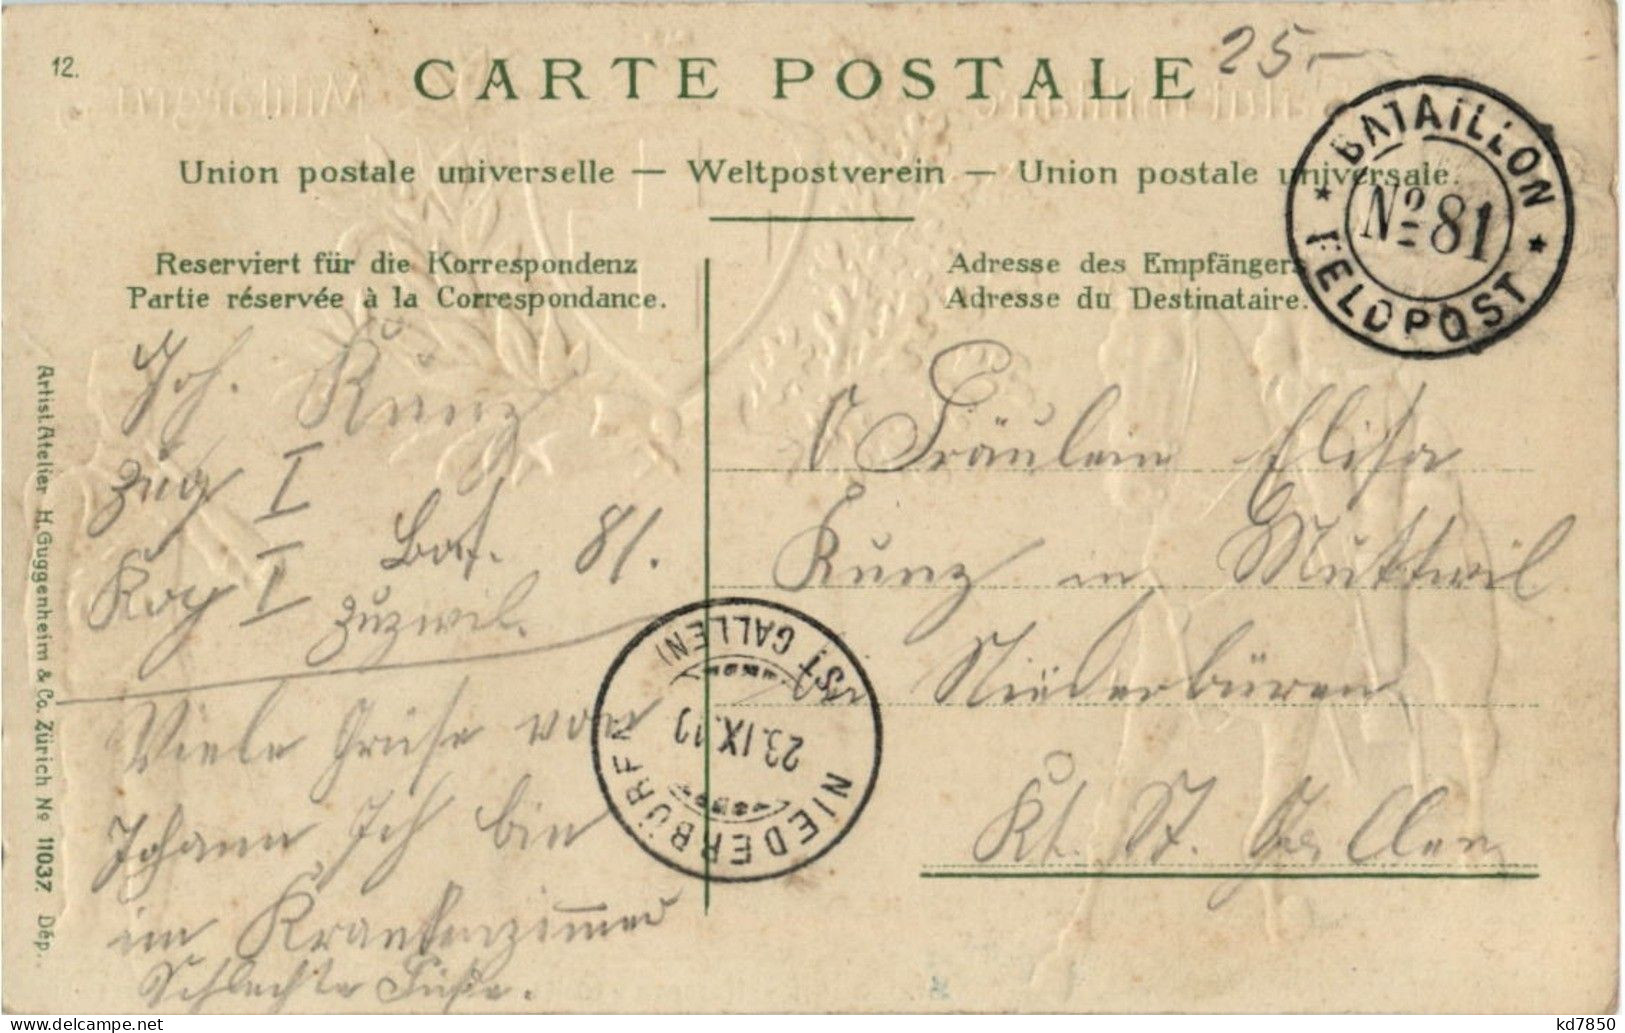 12.
CARTE POSTALE
25.-
Union postale universelle — Weltpostverein — Union postale universale.
BATAILLON
No 81
FELDPOST
Reserviert für die Korrespondenz
Partie réservée à la Correspondance.
Adresse des Empfängers
Adresse du Destinataire.
Joh. Künz
Zug I
Bat. 81.
Kop I
Zuzwil.
Viele Grüse von
Johann Ich bin
im Krankenzimmer
Schlechte Füße.
Fräulein Elisa
Künz in Muttwil
Niederbüren
Kt. St. Gallen
NIEDERBÜREN
23.IX.10
(ST GALLEN)
Artist. Atelier H. Guggenheim & Co. Zürich No 11037. Dép..
kd7850